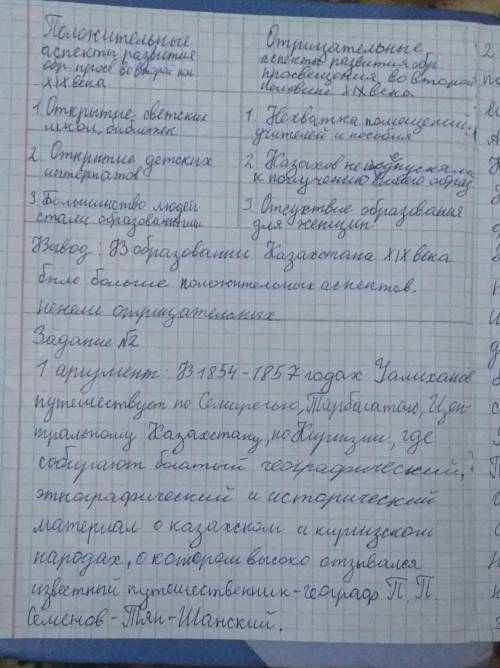 Положительные
аспекты развития
обр. просв. во втор. пол
XIX века
Отрицательные
аспекты развития обр.
просвещения во второй
половине XIX века
1. Открытие светские
школ, библиотек
1. Нехватка помощений,
учителей и пособия
2. Открытие детских
интернатов
2. Казахов не допускали
к получению образ
3. Большинство людей
стали образованными
3. Отсуктвие образования
для женщин
Вывод: В образовании Казахстана XIX века
было больше положительных аспектов,
нежели отрицательных
Задание №2
1 аргумент: В 1854-1857 годах Уалиханов
путешествует по Семиречью, Тарбагатаю, Цен-
тральному Казахстану, по Киргизии, где
собирают богатый географический,
этнографический и исторический
материал о казахском и киргизском
народах, о котором высоко отзывался
известный путешественник-географ П. П.
Семёнов-Тян-Шанский.